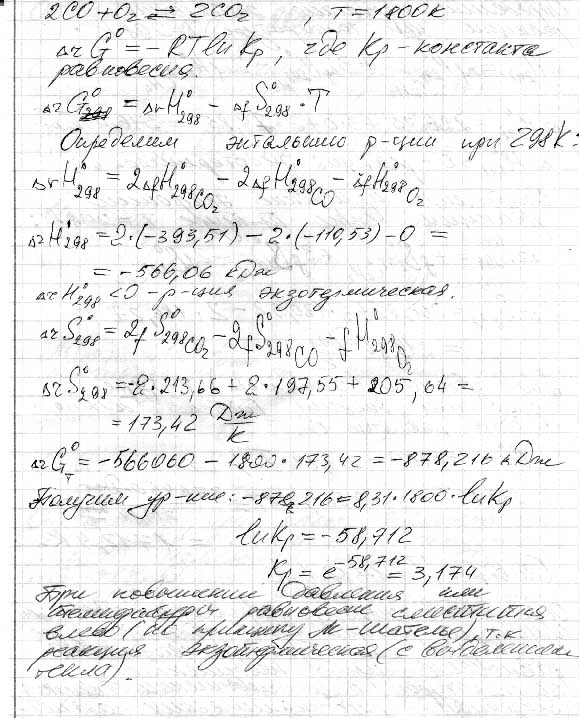 2CO + O₂ ⇄ 2CO₂ , T = 1800K
ΔrG° = -RTlnKp, где Kp - константа
равновесия.
ΔrG°298 = ΔrH°298 - ΔfS°298 · T
Определим энтальпию р-ции при 298K:
ΔrH°298 = 2ΔfH°298CO₂ - 2ΔfH°298CO - ΔfH°298O₂
ΔrH°298 = 2·(-393,51) - 2·(-110,53) - 0 =
= -566,06 кДж
ΔrH°298 < 0 - р-ция экзотермическая.
ΔrS°298 = 2fS°298CO₂ - 2fS°298CO - fH°298O₂
ΔrS°298 = -2·213,66 + 2·197,55 + 205,04 =
= 173,42 Дж/K
ΔrG°T = -566060 - 1800·173,42 = -878,216 кДж
Получим ур-ние: -878,216 = 8,31·1800·lnKp
lnKp = -58,712
Kp = e^-58,712 = 3,174
При повышении давления или
температуры равновесие сместится
влево (по принципу Ле-Шателье), т.к
реакция экзотермическая (с выделением
тепла).